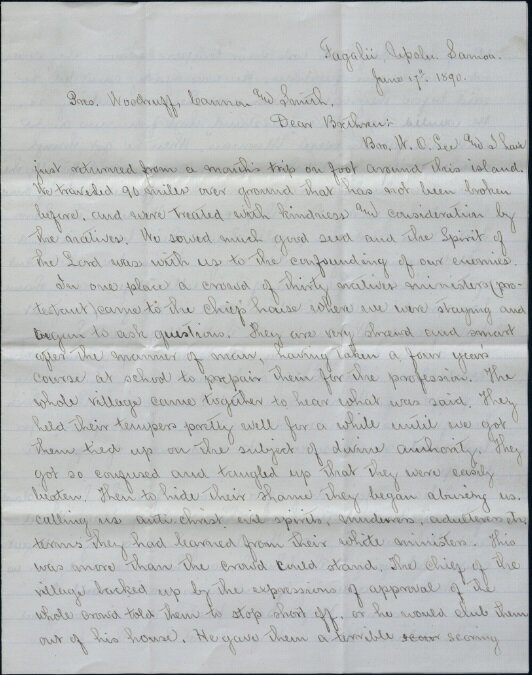 Fagalii, Upolu, Samoa.
June 17th 1890.
Pres. Woodruff, Cannon & Smith.
Dear Brethren:
Bro. W. O. Lee & I have
just returned from a months trip on foot around this island.
We traveled 90 miles over ground that has not been broken
before, and were treated with kindness & consideration by
the natives. We sowed much good seed and the Spirit of
the Lord was with us to the confounding of our enemies.
In one place a crowd of thirty natives ministers (pro-
testant) came to the chief house where we were staying and
began to ask questions. They are very shrewd and smart
after the manner of man, having taken a four years
course at school to prepair them for the profession. The
whole village came together to hear what was said. They
held their tempers pretty well for a while until we got
them tied up on the subject of divine authority. They
got so confused and tangled up that they were easily
beaten. Then to hide their shame they began abusing us,
calling us anti christ evil spirits, murderers, adulterers, the
terms they had learned from their white ministers. This
was more than the crowd could stand. The Chief of the
village backed up by the expressions of approval of the
whole crowd told them to stop short off, or he would club them
out of his house. He gave them a terrible scoring